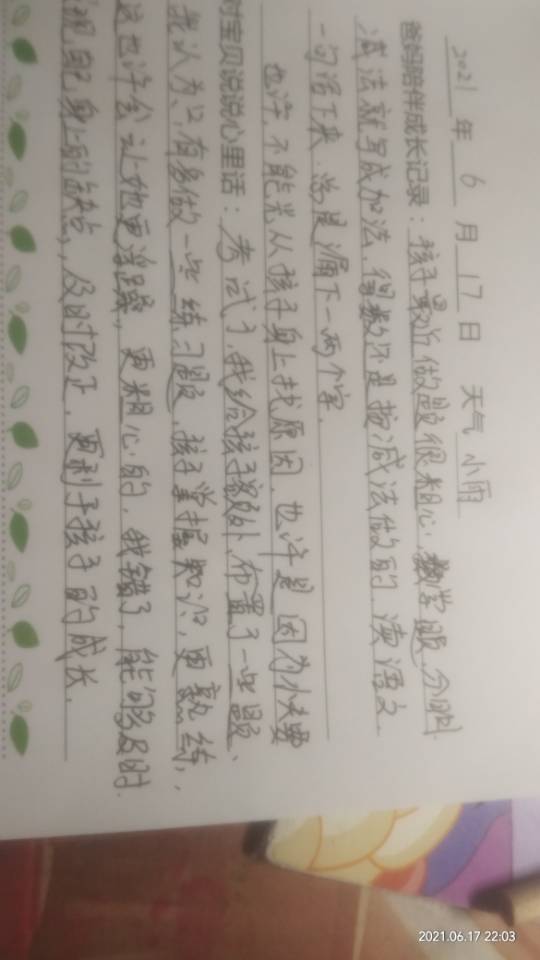 2021年6月17日 天气小雨
爸妈陪伴成长记录：孩子最近做题很粗心，数学题，分明
减法就写成加法，得数还是按减法做的，读语文
一句话下来，总是漏下一两个字。
也许不能光从孩子身上找原因，也许是因为小
对宝贝说说心里话：考试了，我给孩子额外布置了一些题、
我认为，只有多做一些练习题，孩子掌握知识，更熟练，
这也许会让他更浮躁，更粗心的，我错了，能够及时
现，身上的缺点，及时改正，更利于孩子的成长。
2021.06.17 22:03